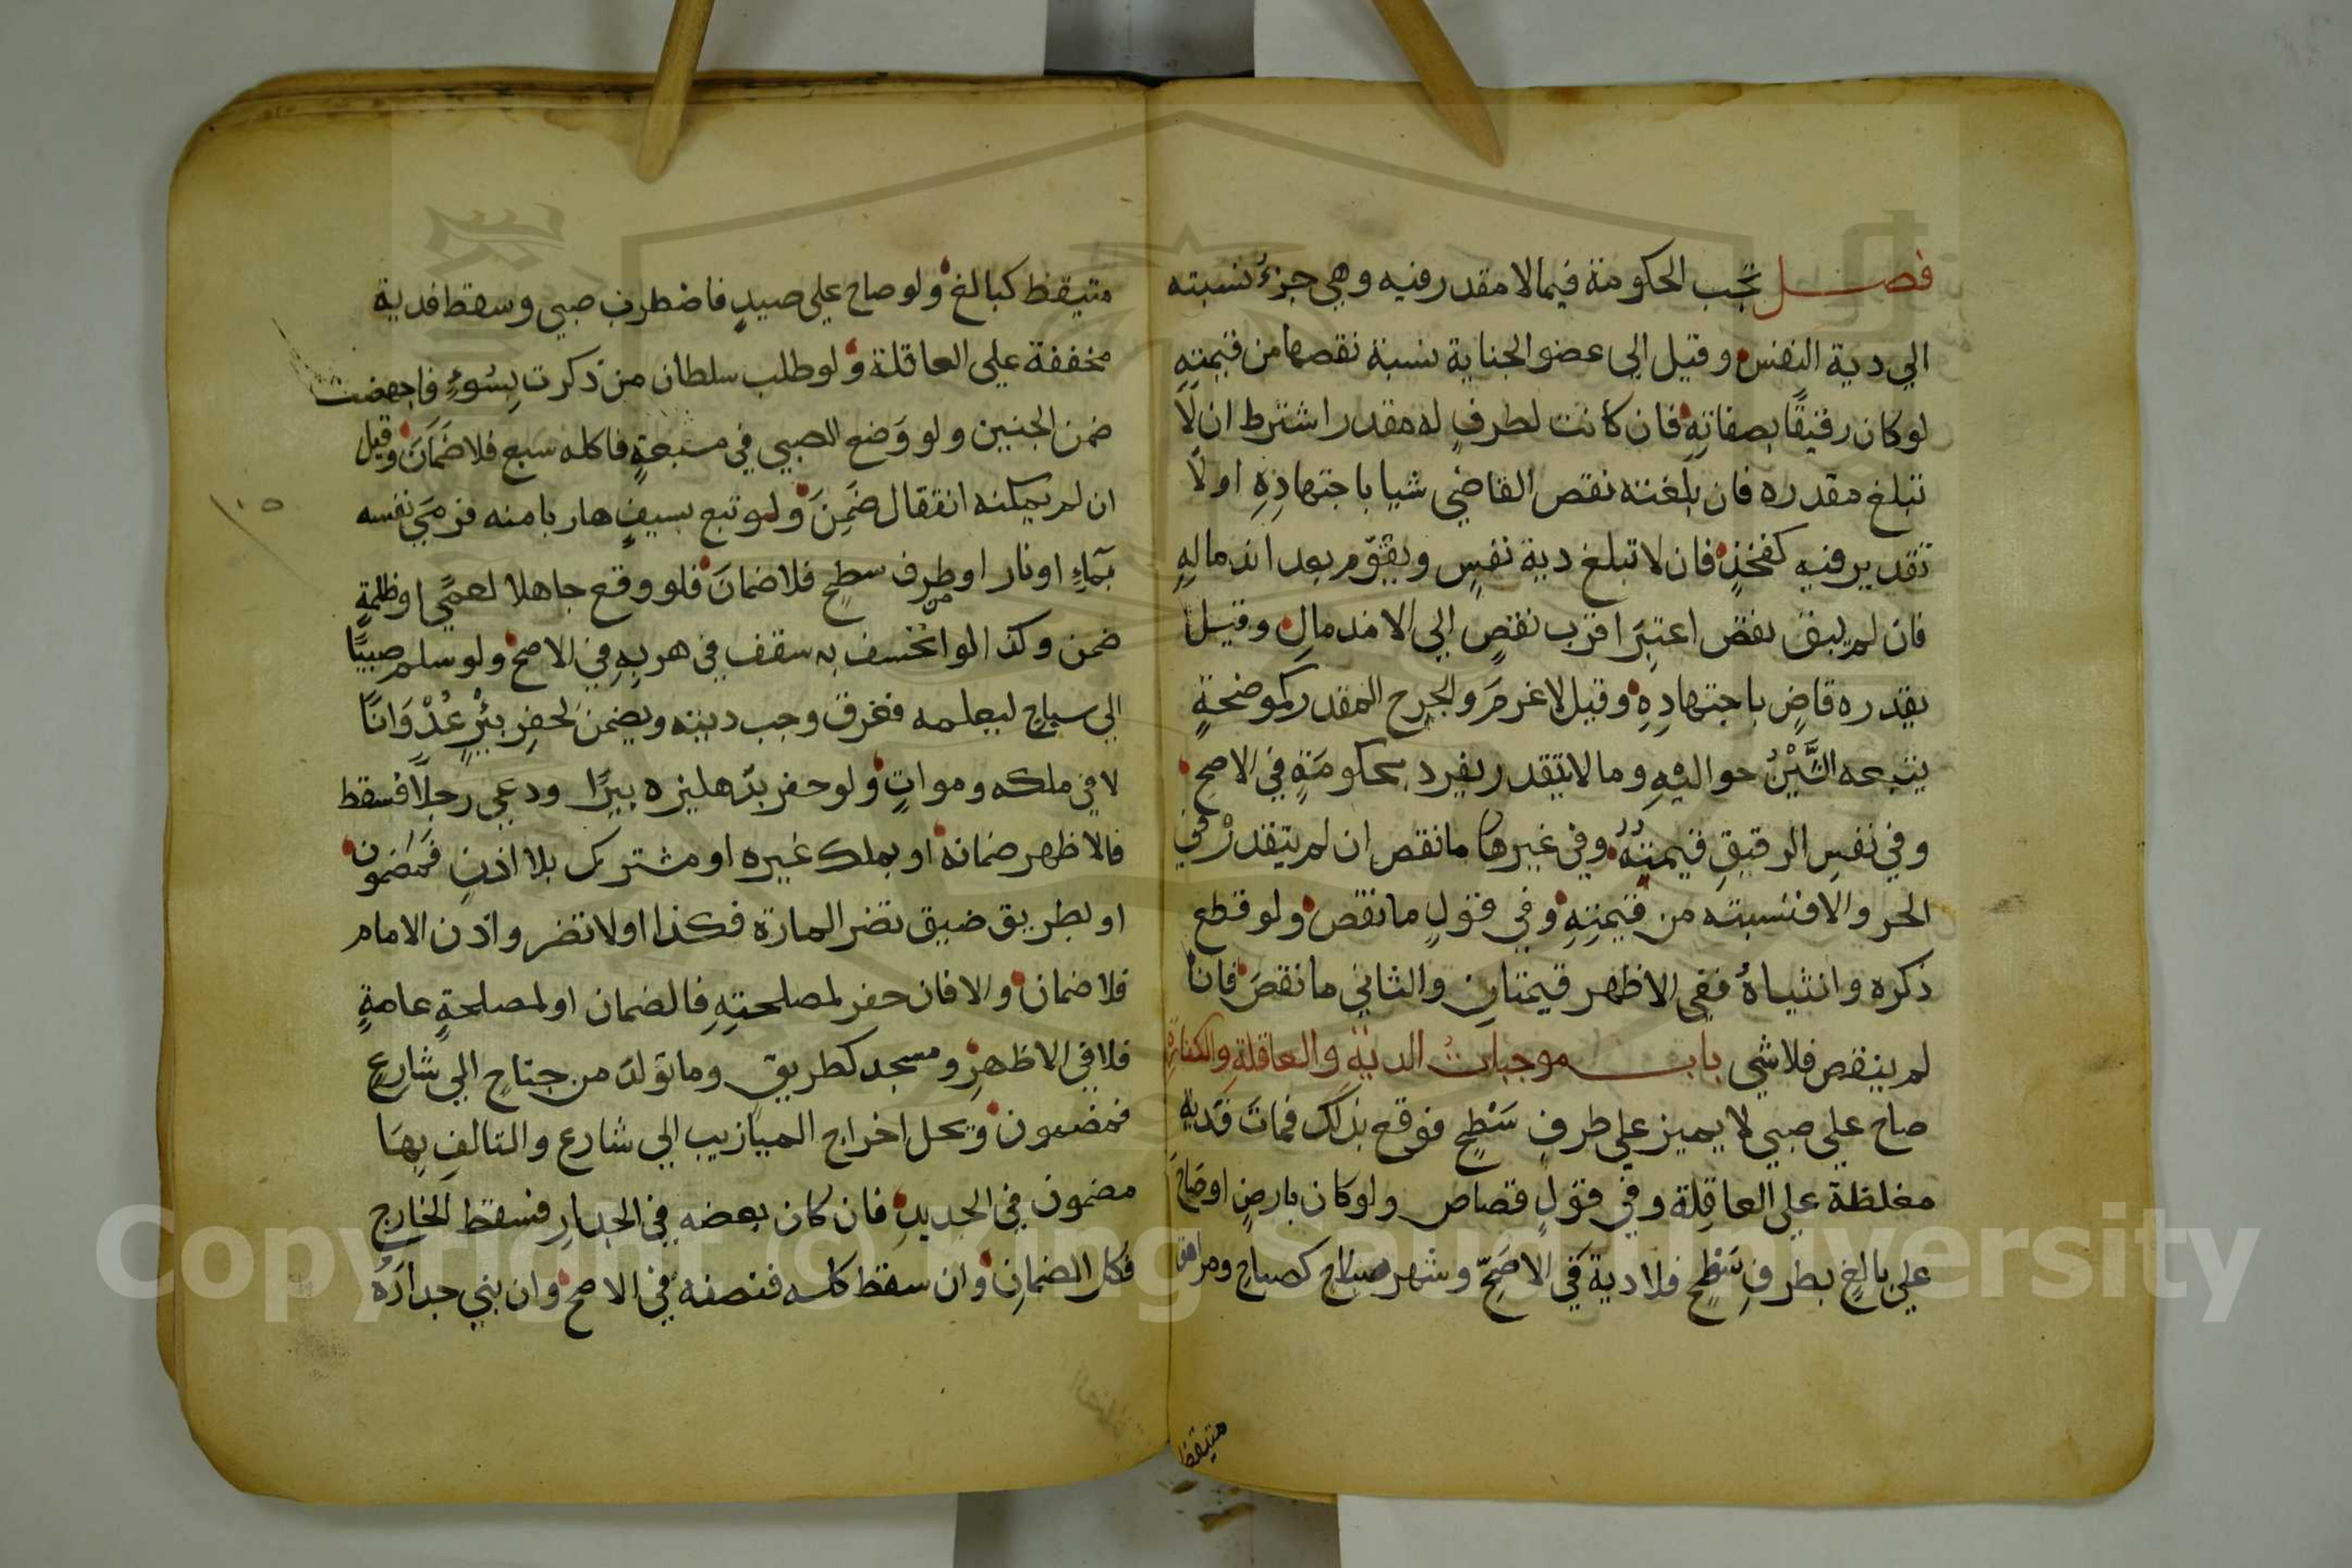 فصل تجب الحكومة فيما لا مقدر فيه وهي جزءُ نسبته
الي دية النفس وقيل الي عضو الجناية نسبة نقصها من قيمتِهِ
لو كان رقيقًا بصفاتِهِ فان كانت لطرفٍ له مقدر اشترط ان لَا
تبلغ مقدره فان بلغته نقص القاضي شيا باجتهادِهِ او لَا
تقدير فيه كفخذٍ فان لا تبلغ دية نفسٍ ويقوّم بعد اندمالِهِ
فان لم يبق نقص اعتبِرَ اقرب نقصٍ الي الاندمالِ وقيل
يقدره قاضٍ باجتهادِهِ وقيل لا غرمَ والجرح المقدر كموضحةٍ
يتبعه الشَّيْنُ حواليْهِ وما لا يتقدر يفرد بحكومَةٍ في الاصح
وفي نفسِ الرقيقِ قيمتُهُ وفي غيرها ما نقص ان لم يتقدرْ في
الحر والا فنسبته من قيمتِهِ وفي قولٍ ما نقص ولو قطع
ذكره وانثياهُ ففي الاظهر قيمتانِ والثاني ما نقصَ فان
لم ينقص فلا شي باب موجبات الدية والعاقلةِ والكفارةِ
صاح علي صبي لا يميز علي طرفِ سَطْحٍ فوقع بذلك فماتَ فدية
مغلظة علي العاقِلة وفي قولٍ قصاص ولو كان بارضٍ او صَاحَ
علي بالغٍ بطرفِ سَطْحٍ فلا دية في الاصَحِّ وشهر سلاح كصياحٍ ومراهق
متيقظ
متيقظ كبالغ ولو صاح علي صيدٍ فاضطرب صبي وسقط فدية
مخففة علي العاقلة ولو طلب سلطان من ذكرت بِسُوءٍ فاجهضت
ضمن الجنين ولو وَضع الصبي في مسبعةٍ فاكله سبع فلا ضَمَانَ وقيل
ان لم يمكنه انتقال ضَمِنَ ولو تبع بسيفٍ هاربا منه فرمَي نفسه
بمَاءٍ او نار او من طرف سطحٍ فلا ضمانَ فلو وقع جاهلا لعميً او ظلمةٍ
ضمن وكذا لو انخسف به سقف في هربِهِ في الاصح ولو سلم صبيًا
الي سباحٍ ليعلمه فغرق وجب ديته ويضمن لحفرِ بئرٍ عُدْوَانًا
لا في ملكه ومواتٍ ولو حفر بدهليزه بيرًا ودعي رجلًا فسقط
فالاظهر ضمانه او بملك غيره او مشترك بلا اذنٍ فمضمون
او بطريق ضيق تضر المارة فكذا او لا تضر واذن الامام
فلا ضمان والا فان حفر لمصلحتِهِ فالضمان او لمصلحةٍ عامةٍ
فلا في الاظهرِ ومسجد كطريق وما تولد من جناحٍ الي شارعٍ
فمضمون ويحل اخراج الميازيب الي شارع والتالفِ بهَا
مضمون في الجديدِ فان كان بعضه في الجدارِ فسقط الخارج
فكل الضمانِ وان سقط كله فنصفه في الاصح وان بني جدارَهُ
١٠٥
Copyright © King Saud University